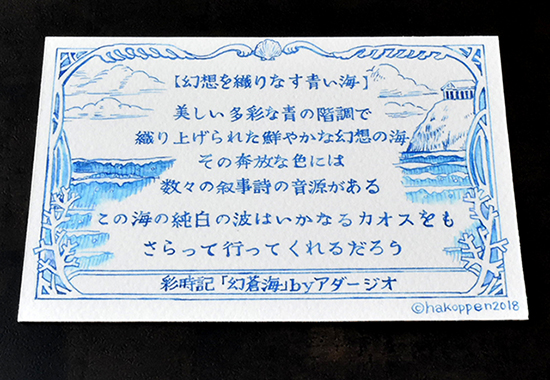 【幻想を織りなす青い海】
美しい多彩な青の階調で
織り上げられた鮮やかな幻想の海
その奔放な色には
数々の叙事詩の音源がある
この海の純白の波はいかなるカオスをも
さらって行ってくれるだろう
彩時記「幻蒼海」byアダージオ
©hakoppen2018